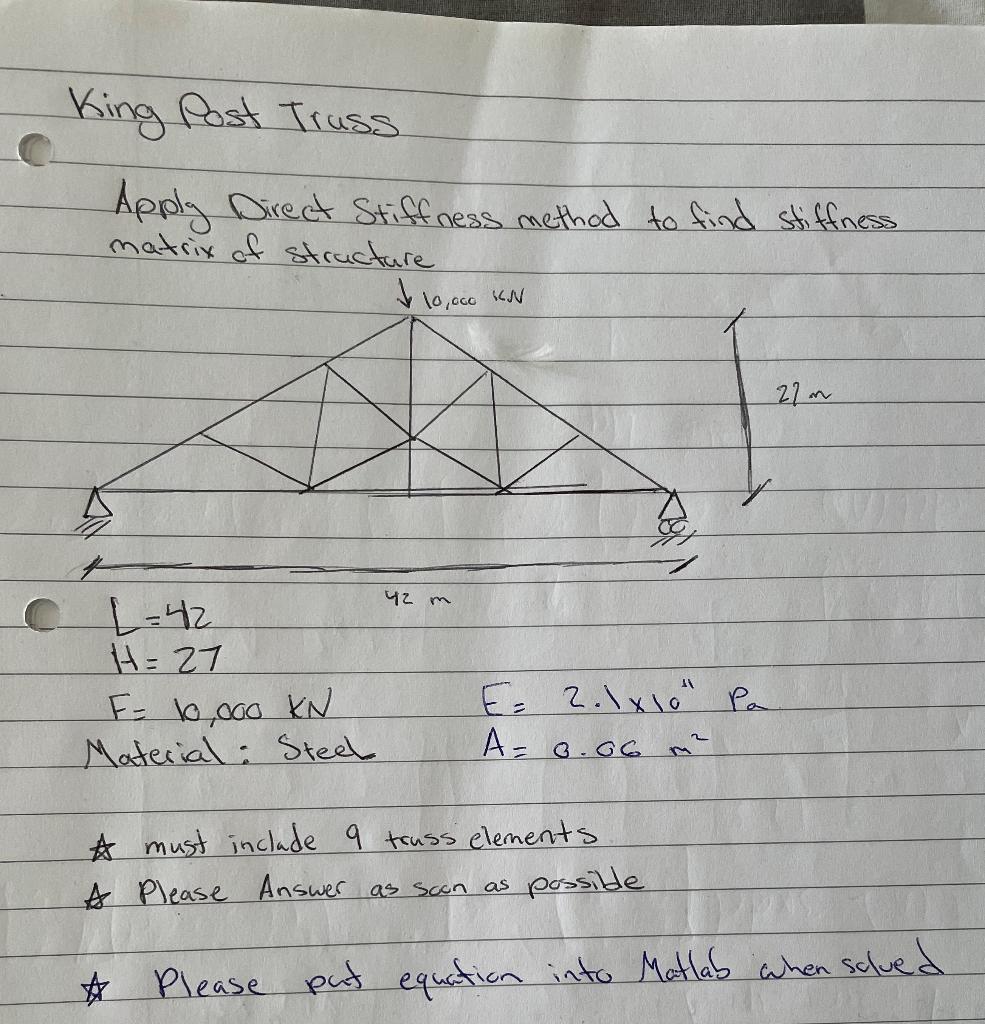 King Post Truss
Apply Direct Stiffness method to find stiffness
matrix of structure
10,000 KN
27 m
42 m
L=42
H= 27
F= 10,000 KN
E= 2.1x10¹¹ Pa
Material: Steel
A= 0.06 m²
☆ must include 9 truss elements
☆ Please Answer as soon as possible
☆ Please put equation into Matlab when solved